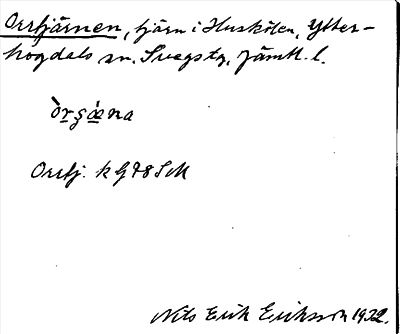 Orrtjärnen, tjärn i Huskölen, Ytter-
hogdals sn. Svegs tg, Jämtl. l.
òrgæna
Orrtj. k G78SM
Nils Erik Eriksson 1932.